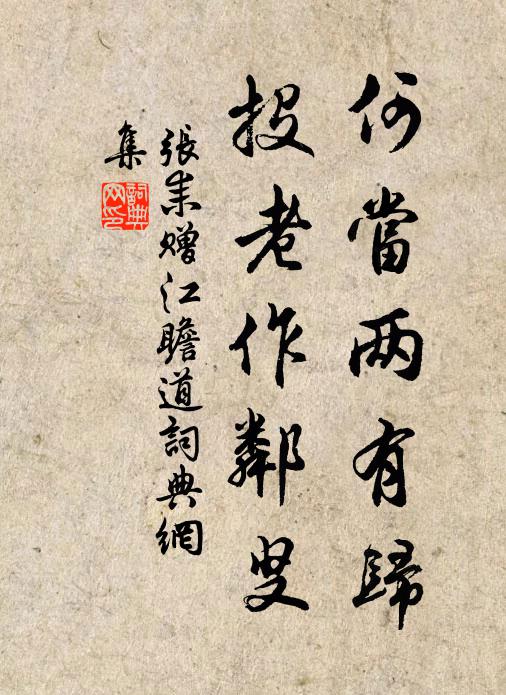 何當两有歸
投老作鄰叟
張耒贈江瞻道詞典網
集
詞典
网印